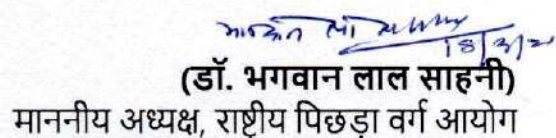 (डॉ. भगवान लाल साहनी)
माननीय अध्यक्ष, राष्ट्रीय पिछड़ा वर्ग आयोग